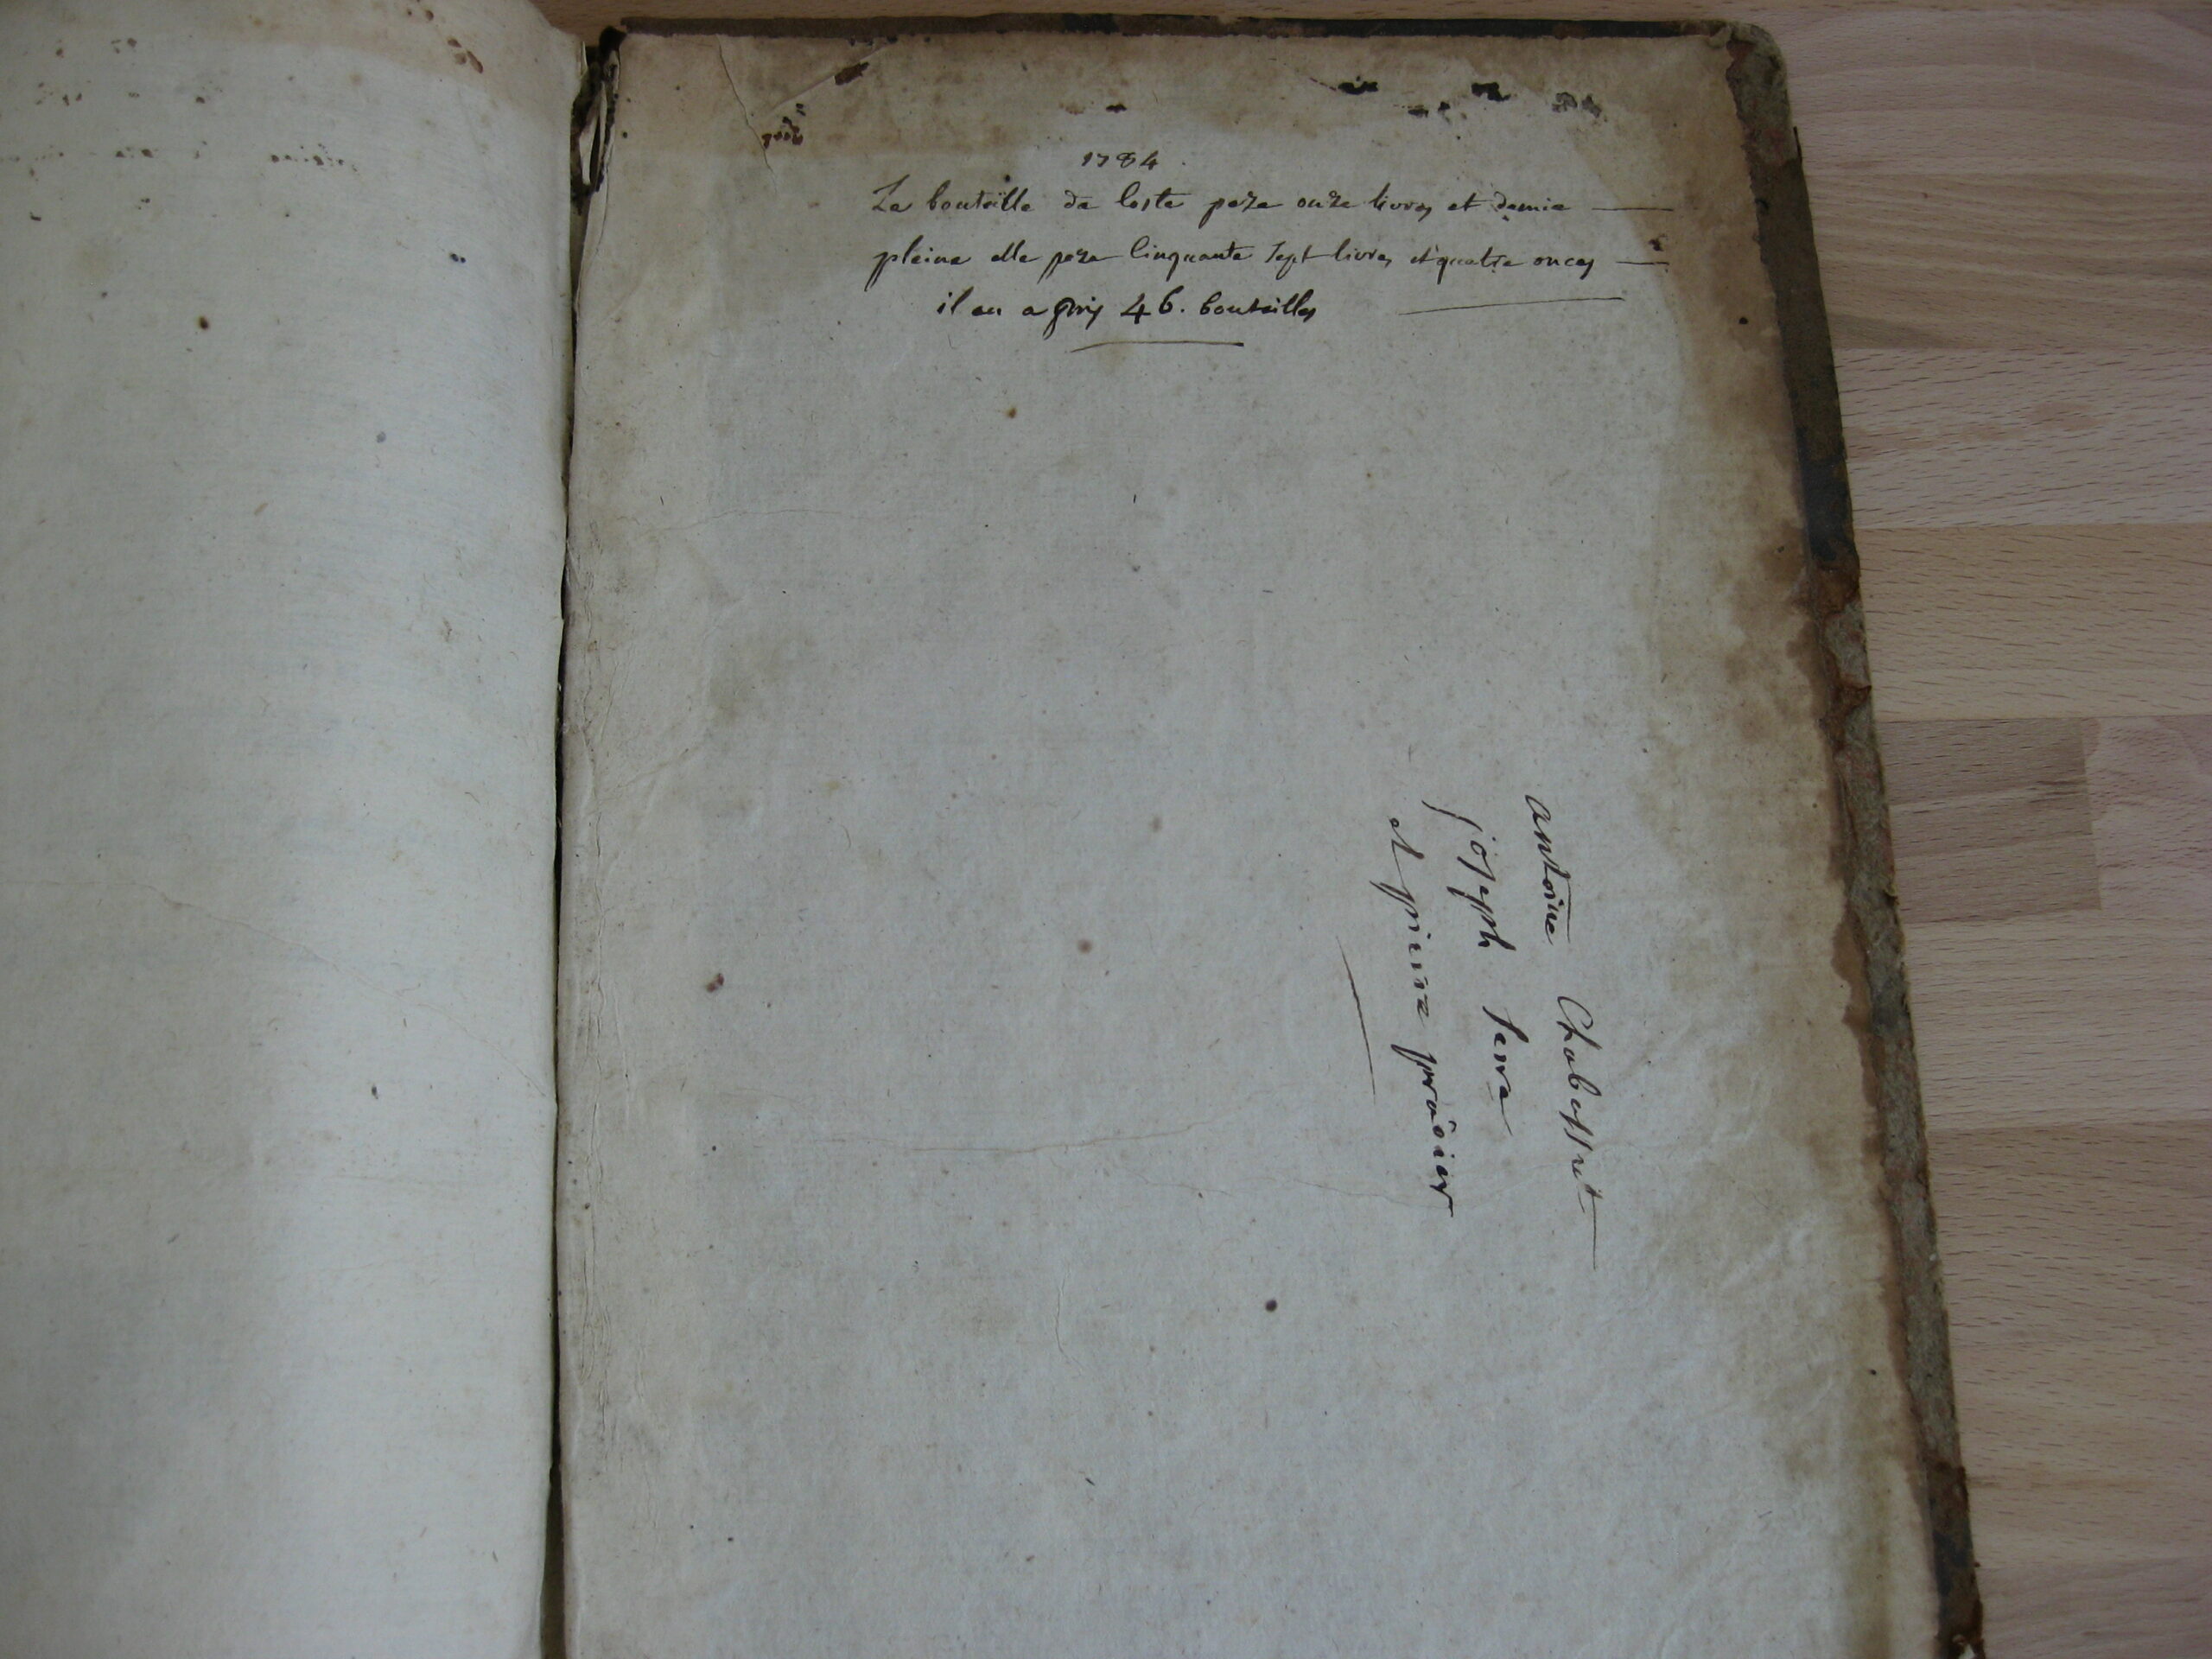 1784
La bouteille de loste peze onze livres et demie
pleine elle peze Cinquante Sept livres et quatre onces
il en a pris 46. bouteilles
antoine Chabassut
joseph Serre
et pierre